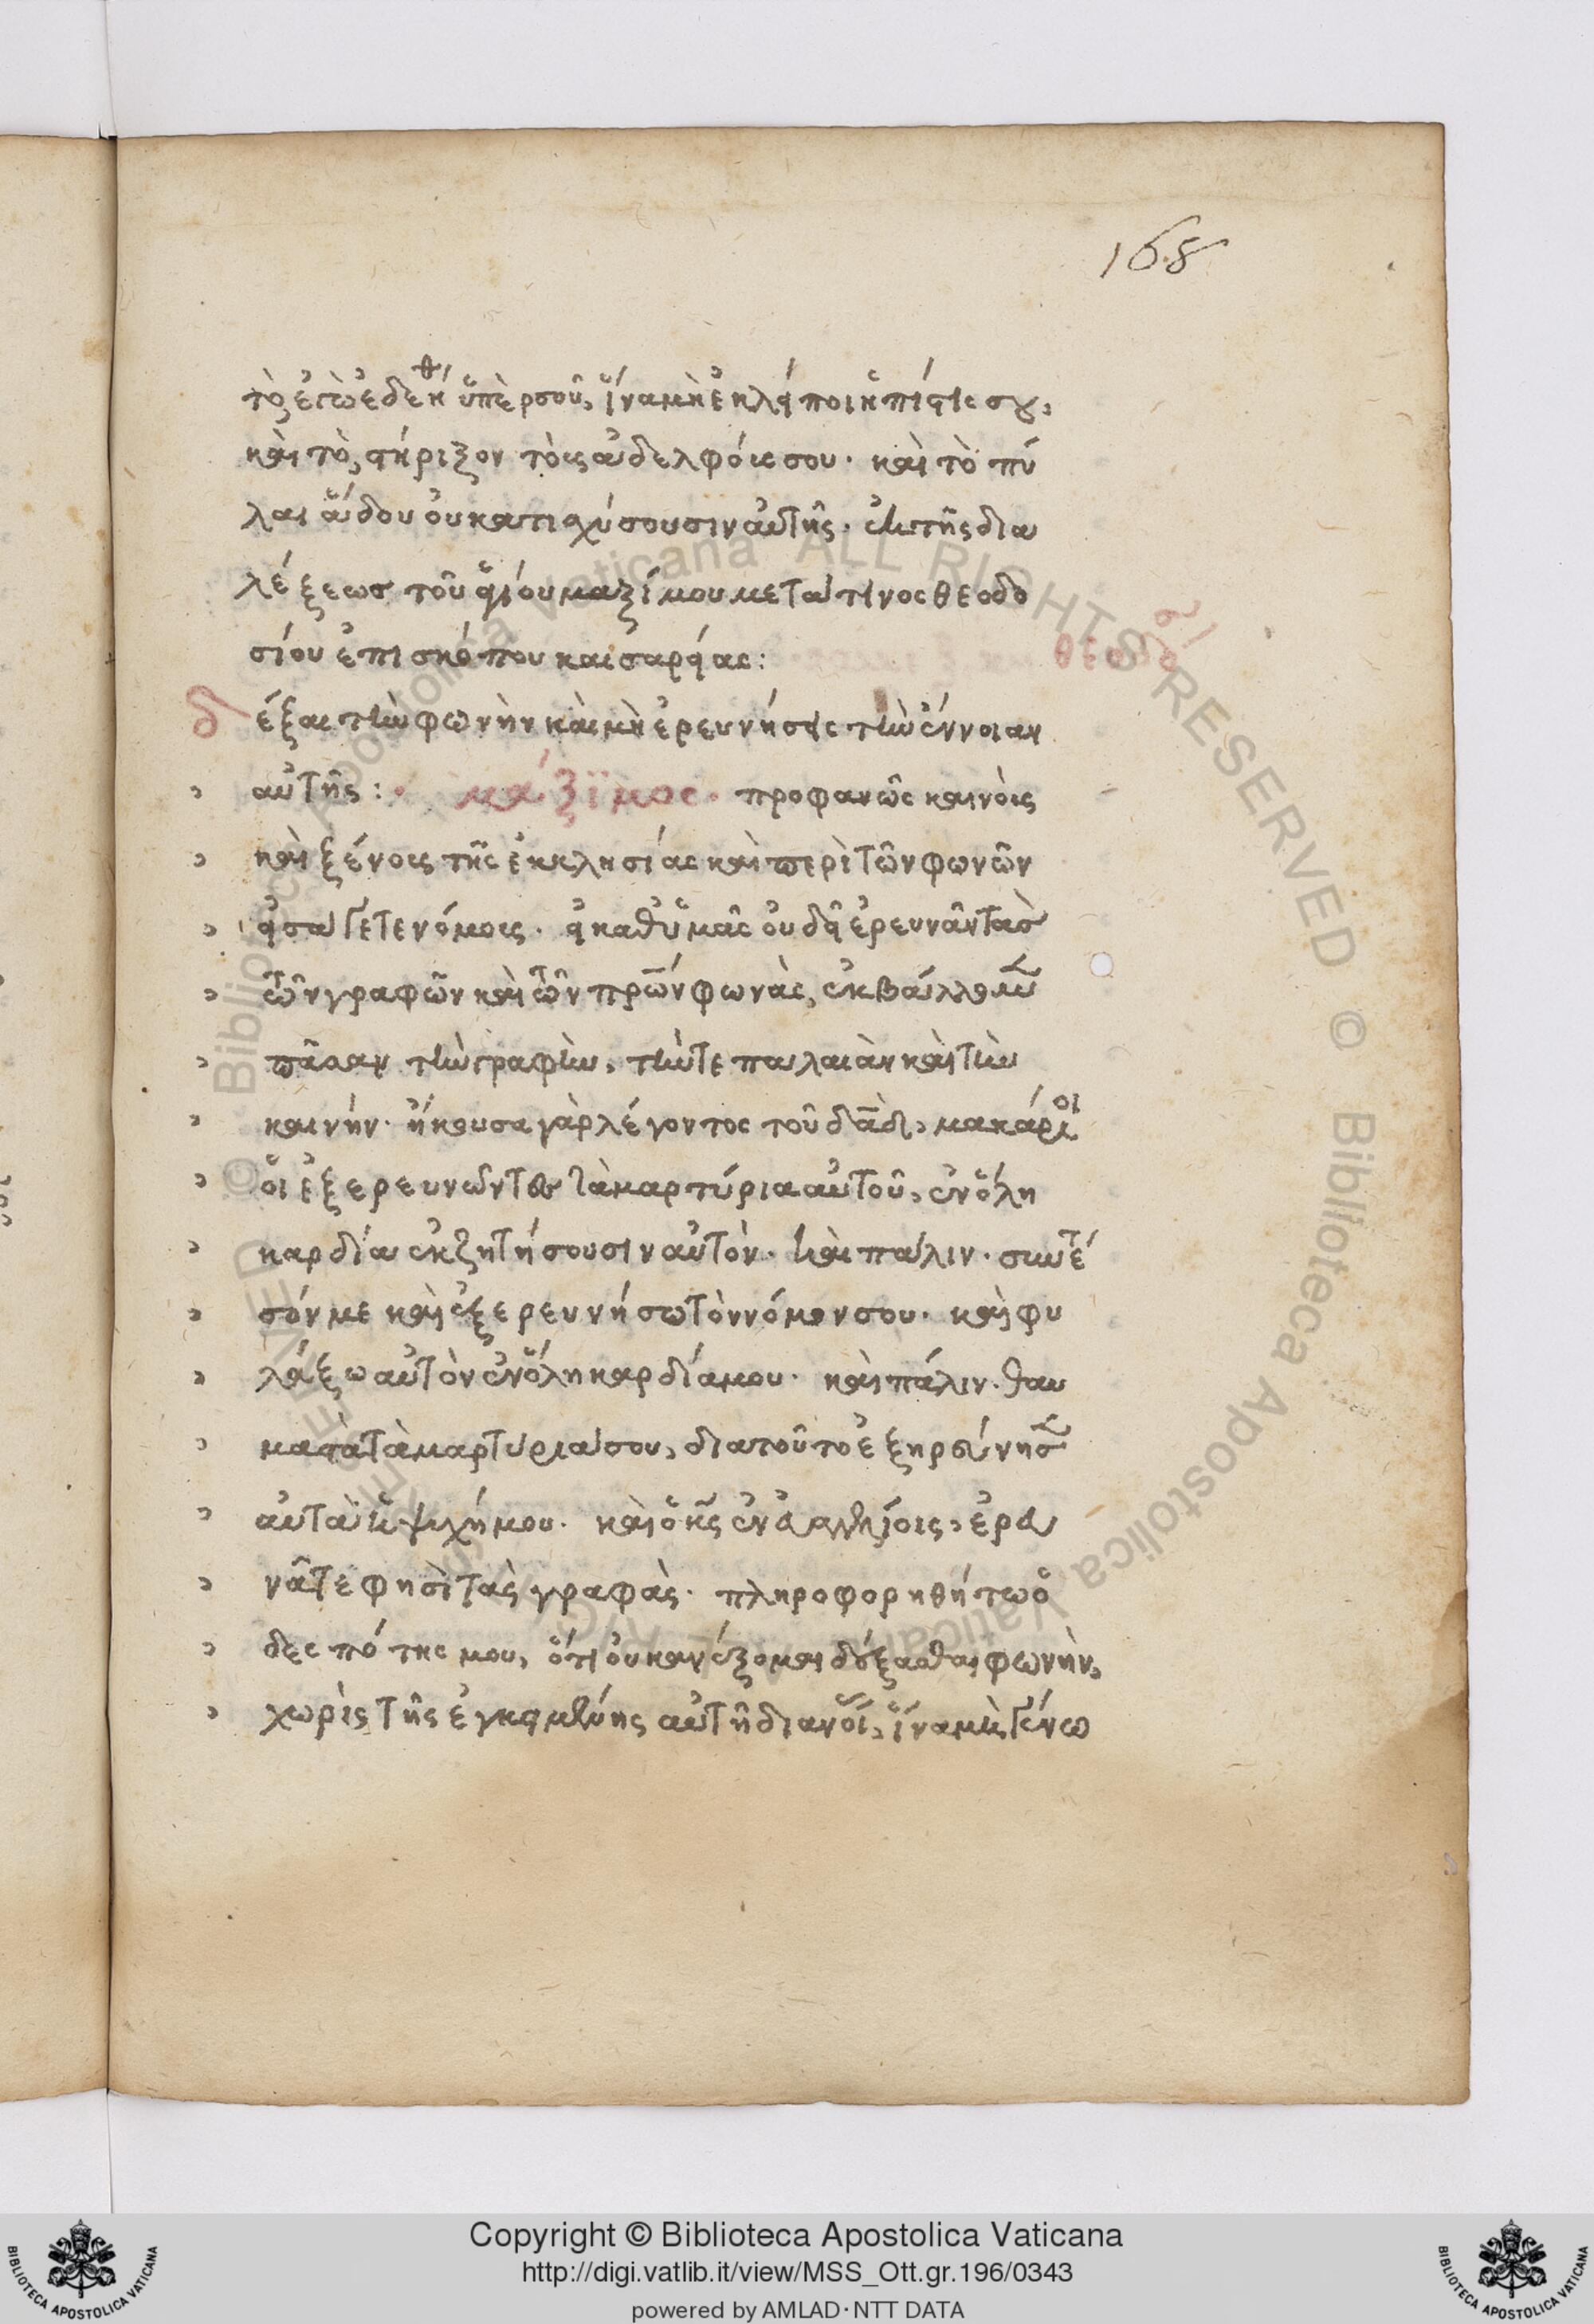 168
τὸ, ἐγὼ ἐδεήθ ὑπὲρ σοῦ, ἵνα μὴ ἐκλείποι ἡ πίστις σου,
καὶ τὸ, στήριξον τοῖς ἀδελφοῖς σου. καὶ τὸ πύ
λαι ἅδου οὐ κατισχύσουσιν αὐτῆς. ἐκ τῆς δια
λέξεως τοῦ ἁγίου μαξίμου μετά τινος θεοδο
σίου ἐπισκόπου καισαρείας:
θεοδόσι
δέξαι τὴν φωνὴν καὶ μὴ ἐρευνήσεις τὴν ἔννοιαν
αὐτῆς: μάξϊμος. προφανῶς καινοῖς
καὶ ξένοις τῆς ἐκκλησίας καὶ περὶ τῶν φωνῶν
εἰσάγετε νόμοις. εἰ καθ' ὑμᾶς οὐ δεῖ ἐρευνᾶν τὰς
τῶν γραφῶν καὶ τῶν πρων φωνὰς, ἐκβάλλομεν
πᾶσαν τὴν γραφὴν, τήν τε παλαιὰν καὶ τὴν
καινήν. ἤκουσα γὰρ λέγοντος τοῦ δαδ, μακάριοι
οἱ ἐξερευνῶντες τὰ μαρτύρια αὐτοῦ, ἐν ὅλη
καρδία ἐκζητήσουσιν αὐτόν. καὶ πάλιν. συνέτι
σόν με καὶ ἐξερευνήσω τὸν νόμον σου. καὶ φυ
λάξω αὐτὸν ἐν ὅλη καρδία μου. καὶ πάλιν. θαυ
μαστὰ τὰ μαρτύρια σου, διατοῦτο ἐξηρεύνησεν
αὐτὰ ἡ ψυχή μου. καὶ ὁ κς ἐν εὐαγγελίοις, ἐρευ
νᾶτε φησὶ τὰς γραφὰς. πληροφορηθήτω ὁ
δεσπότης μου, ὅτι οὐκ ἀνέξομαι δέξασθαι φωνὴν,
χωρὶς τῆς ἐγκειμένης αὐτῆ διανοί, ἵνα μὴ γένω
Copyright © Biblioteca Apostolica Vaticana
http://digi.vatlib.it/view/MSS_Ott.gr.196/0343
powered by AMLAD · NTT DATA